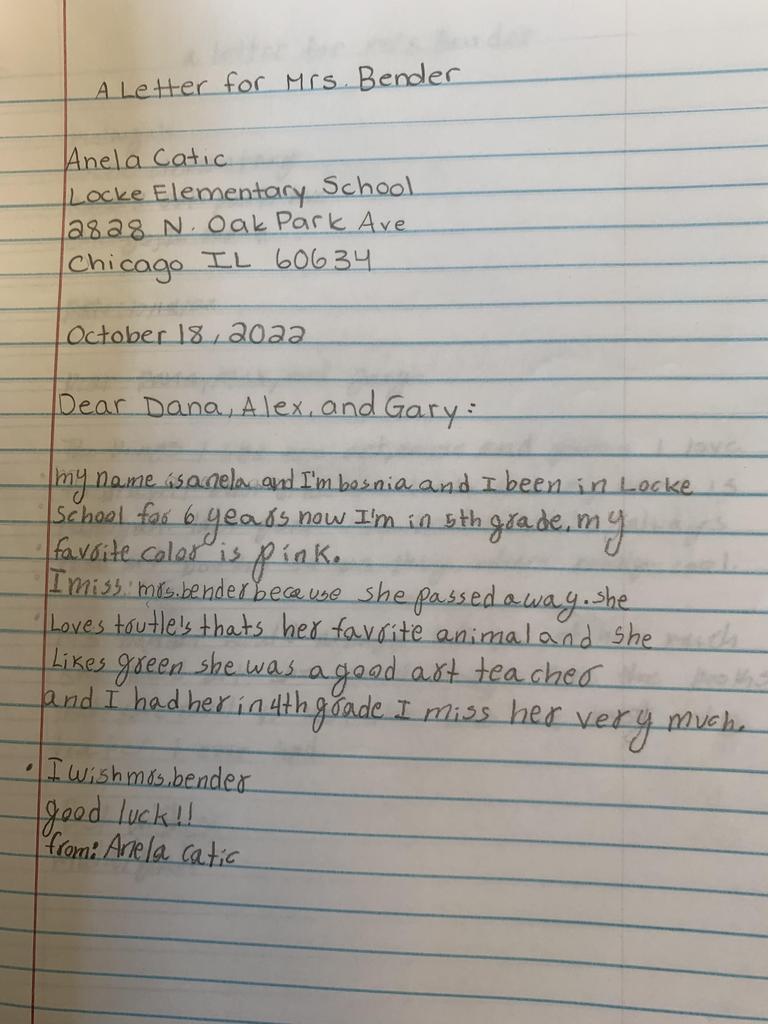 A Letter for Mrs. Bender
Anela Catic
Locke Elementary School
2828 N. Oak Park Ave
Chicago IL 60634
October 18, 2022
Dear Dana, Alex, and Gary:
my name is anela and I'm bosnia and I been in Locke
School for 6 years now I'm in 5th grade, my
favorite color is pink.
I miss mrs.bender because she passed away. she
Loves toutle's thats her favrite animal and she
Likes green she was a good art teacher
and I had her in 4th grade I miss her very much.
• I wish mrs.bender
good luck!!
from: Anela Catic